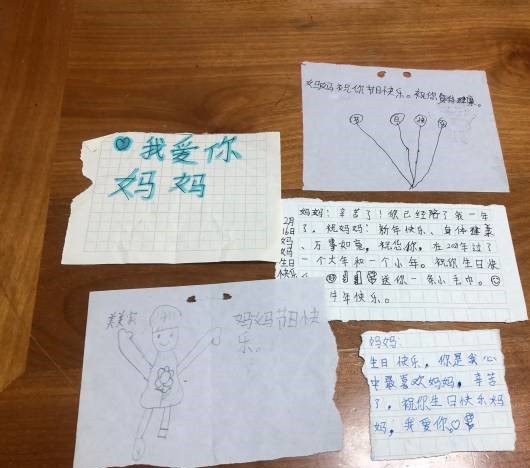 妈妈祝你节日快乐。祝你身体健康。
我爱你
妈妈
2月
16日
妈
妈
生日
快乐
妈妈：辛苦了！你已经陪了我一年
了，祝妈妈：新年快乐、身体健
万事如意，祝您
一个大年和一个小年。祝你生日快
送你一条小毛巾。
牛年快乐。
美美
妈妈节日快
乐。
妈妈：
生日快乐，你是我心
中最喜欢妈妈，辛苦
了，祝你生日快乐妈
妈，我爱你